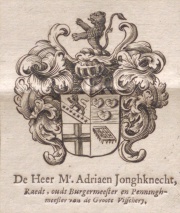 De Heer Mr. Adriaen Jonghknecht,
Raedt, oudt Burgermeester en Penningh-
meester van de Groote Visschery,